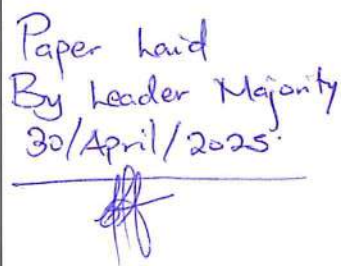 Paper Laid
By Leader Majority
30/April/2025.